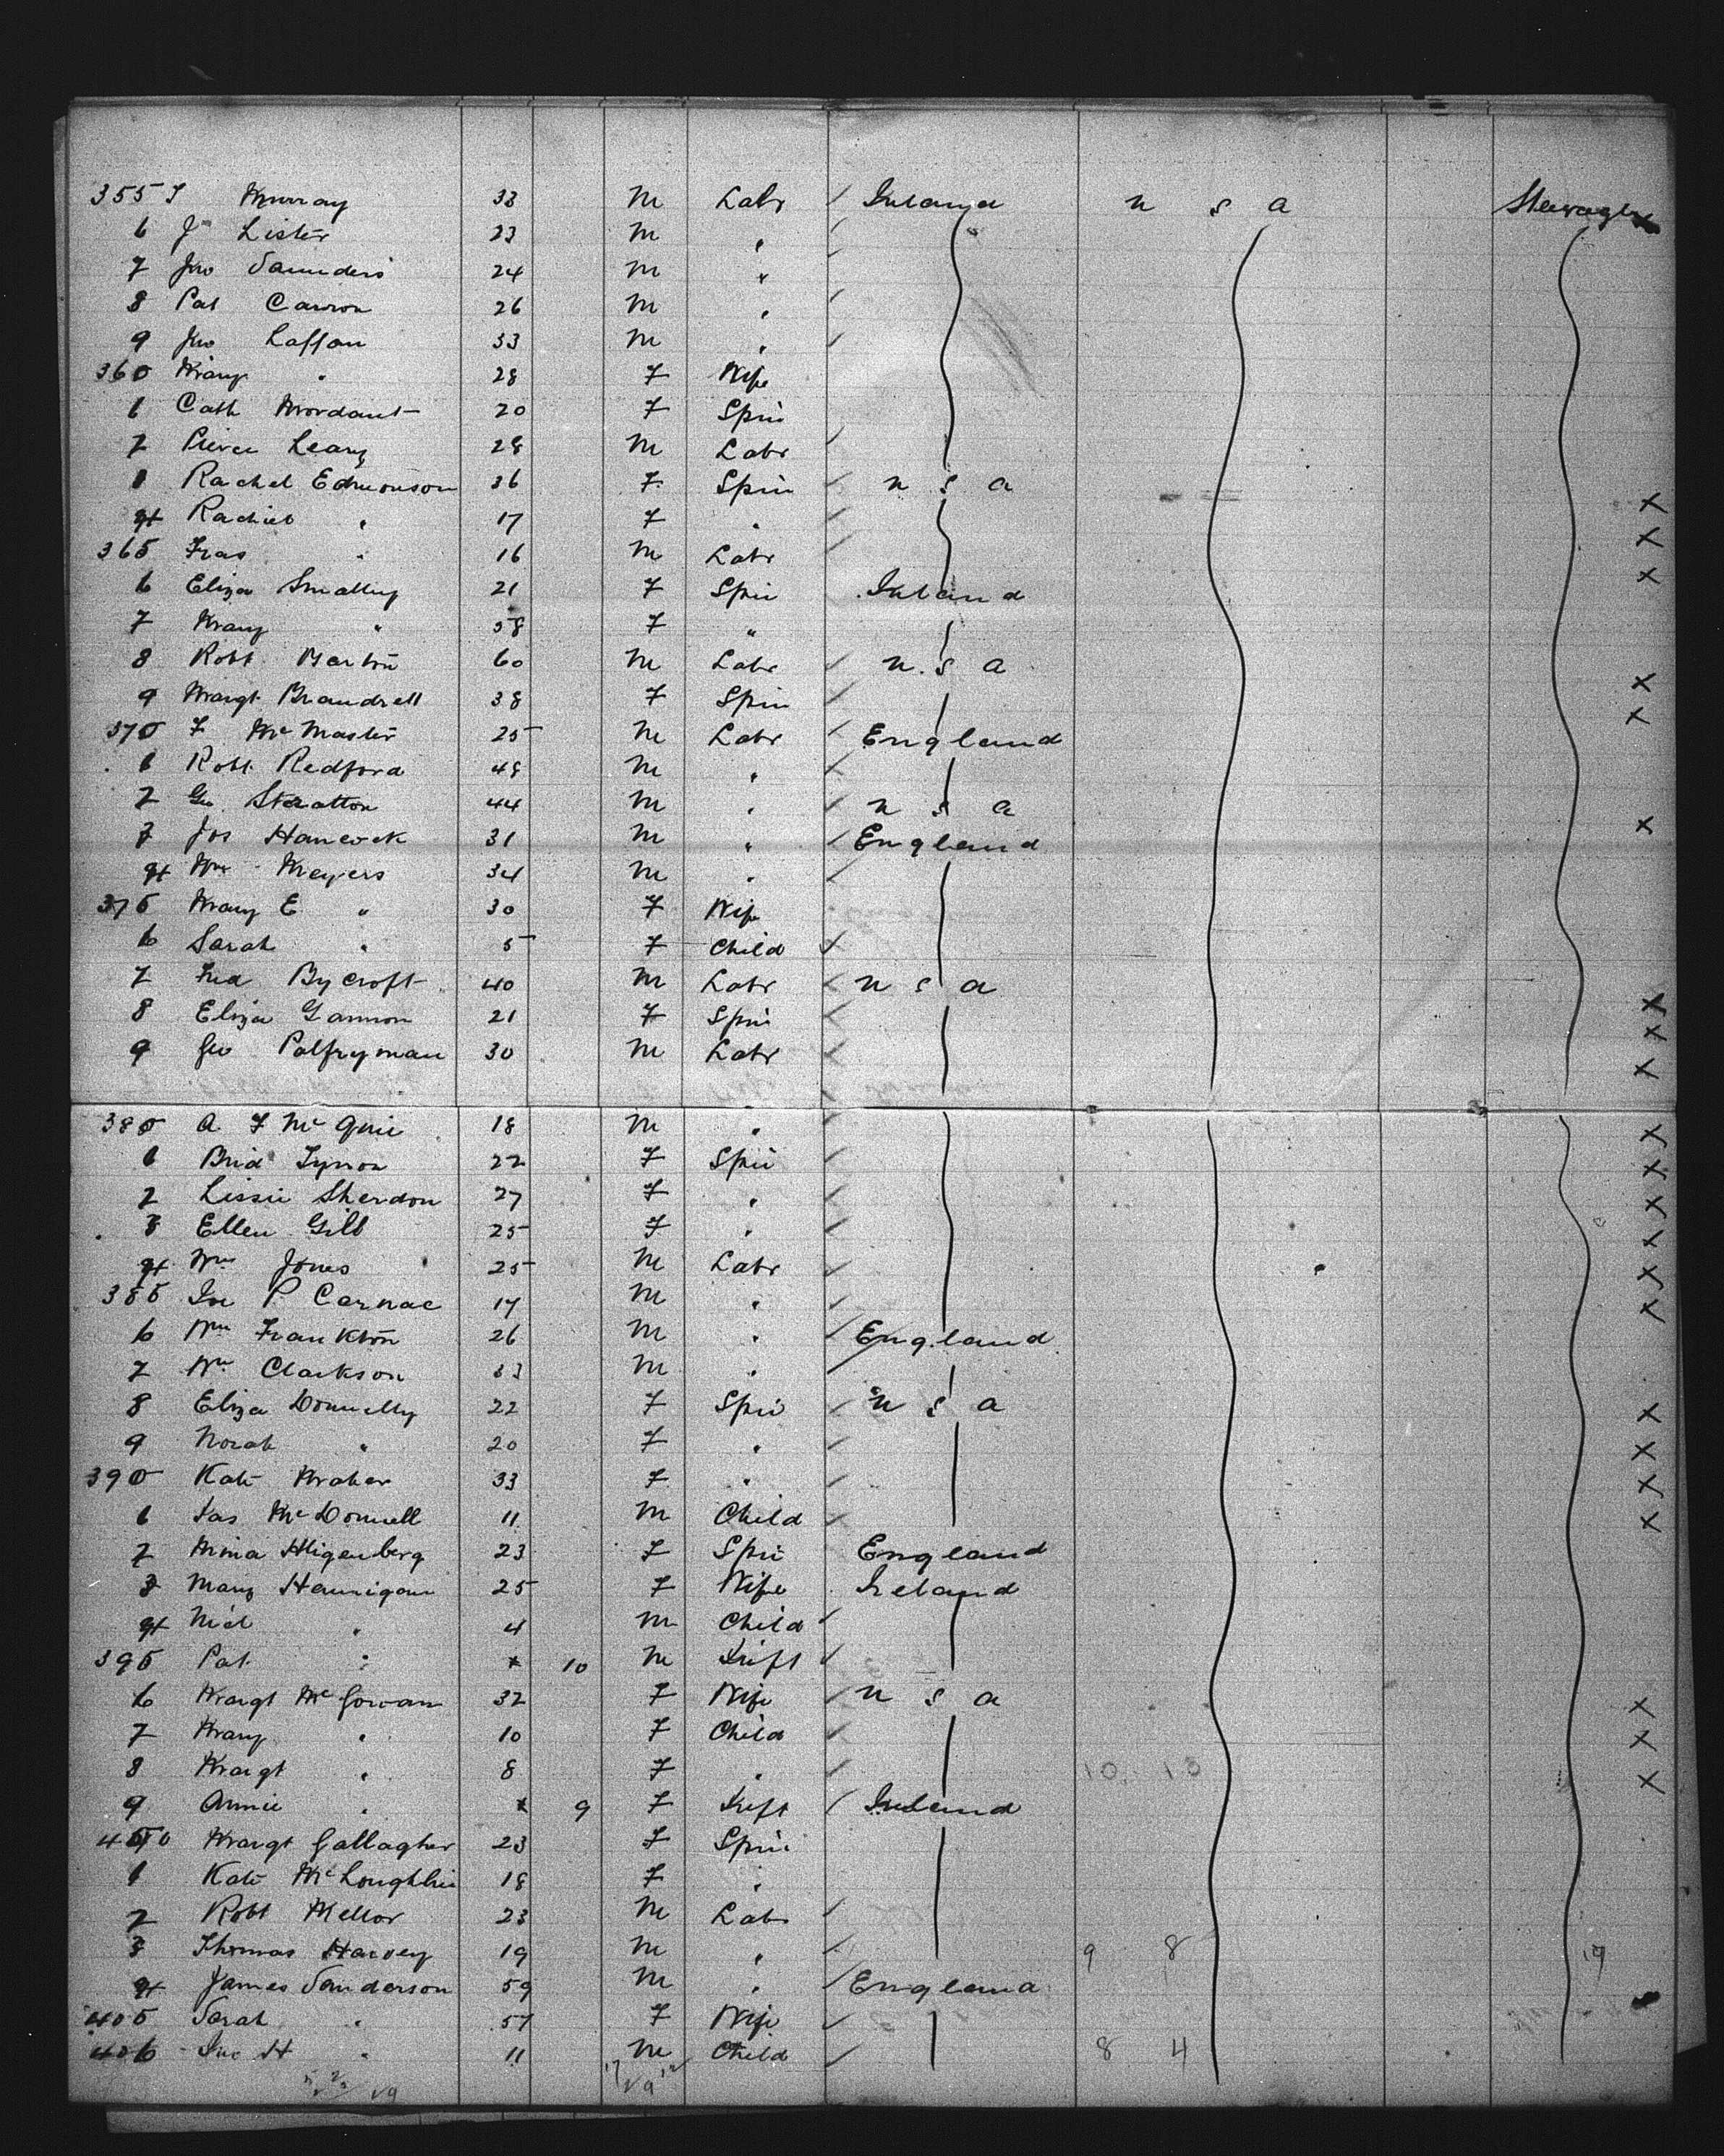 355 T Murray 33 M Labr / Ireland U S A Steerage
6 J Lister 23 M " /
7 Jno Saunders 24 M " /
8 Pat Carron 26 M " /
9 Jno Laffan 33 M " /
360 Mary " 28 F Wife
1 Cath Mordaunt 20 F Spin
2 Pierce Leary 28 M Labr /
3 Rachel Edmonson 36 F Spin / U S A X
4 Rachel " 17 F " / X
365 Fras " 16 M Labr / X
6 Eliza Smalley 21 F Spin / Ireland
7 Mary " 58 F " /
8 Robt Barton 60 M Labr / U.S A X
9 Margt Brandrett 38 F Spin / X
370 F McMaster 25 M Labr / England
1 Robt Redford 48 M " /
2 Geo Stratton 44 M " / U S A X
3 Jos Hancock 31 M " / England
4 Wm Meyers 34 M " /
375 Mary E " 30 F Wife
6 Sarah " 5 F Child /
7 Fred Bycroft 40 M Labr / U S A X
8 Eliza Gannon 21 F Spin / X
9 Geo Palfryman 30 M Labr / X
380 A F Mc 18 M " / X
1 Brid Tynon 22 F Spin / X
2 Lissie Sherdon 27 F " / X
3 Ellen Gill 25 F " / X
4 Wm Jones 25 M Labr / X
385 P. Carnac 17 M " / X
6 Wm Frankton 26 M " / England
7 Wm Clarkson 33 M " /
8 Eliza Donnelly 22 F Spin / U S A X
9 Norah " 20 F " / X
390 Kate Maher 33 F " / X
1 Jas McDonnell 11 M Child / X
2 Mina 23 F Spin / England
3 Mary Hannigan 25 F Wife Ireland
4 " 4 M Child /
395 Pat " 10 M Inft /
6 Margt McGowan 32 F Wife / U S A X
7 Mary " 10 F Child / X
8 Margt " 8 F " / 10 10 X
9 Annie " 9 F Inft / Ireland
400 Margt Gallagher 23 F Spin
1 Kate McLoughlin 18 F "
2 Robt Mellor 23 M Labr /
3 Thomas Harvey 19 M " / 9 8 19
4 James Sanderson 59 M " / England
405 Sarah " 57 F Wife /
406 Jno H " 11 M Child / 8 4